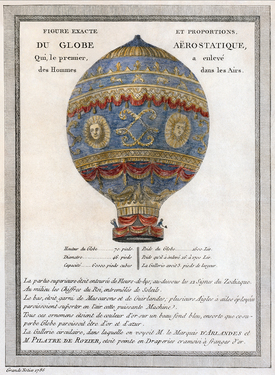 FIGURE EXACTE ET PROPORTIONS,
DU GLOBE AËROSTATIQUE,
Qui, le premier, a enlevé
des Hommes dans les Airs.
Hauteur du Globe 70. pieds Poids du Globe 1600 Liv.
Diametre 46. pieds Poids qu'il a enlevé
Capacité 60000 pieds cubes La Gallerie avoit 3 pieds de largeur.
La partie supérieure étoit entourée de Fleurs-de-lys; au-dessous les 12 Signes du Zodiaque.
Au milieu les Chiffres du Roi, entremêlés de Soleils.
Le bas, étoit garni de Mascarons et de Guirlandes; plusieurs Aigles à ailes éployées
paroissoient supporter en l'air cette puissante Machine.
Tous ces ornemens étoient de couleur d'Or sur un beau fond bleu, ensorte que ce su-
perbe Globe paroissoit être d'or et d'azur.
La Gallerie circulaire, dans laquelle on voyoit M. le Marquis D'ARLANDES et
M. PILATRE DE ROZIER, étoit peinte en Draperies cramoisi à franges d'or.
1786